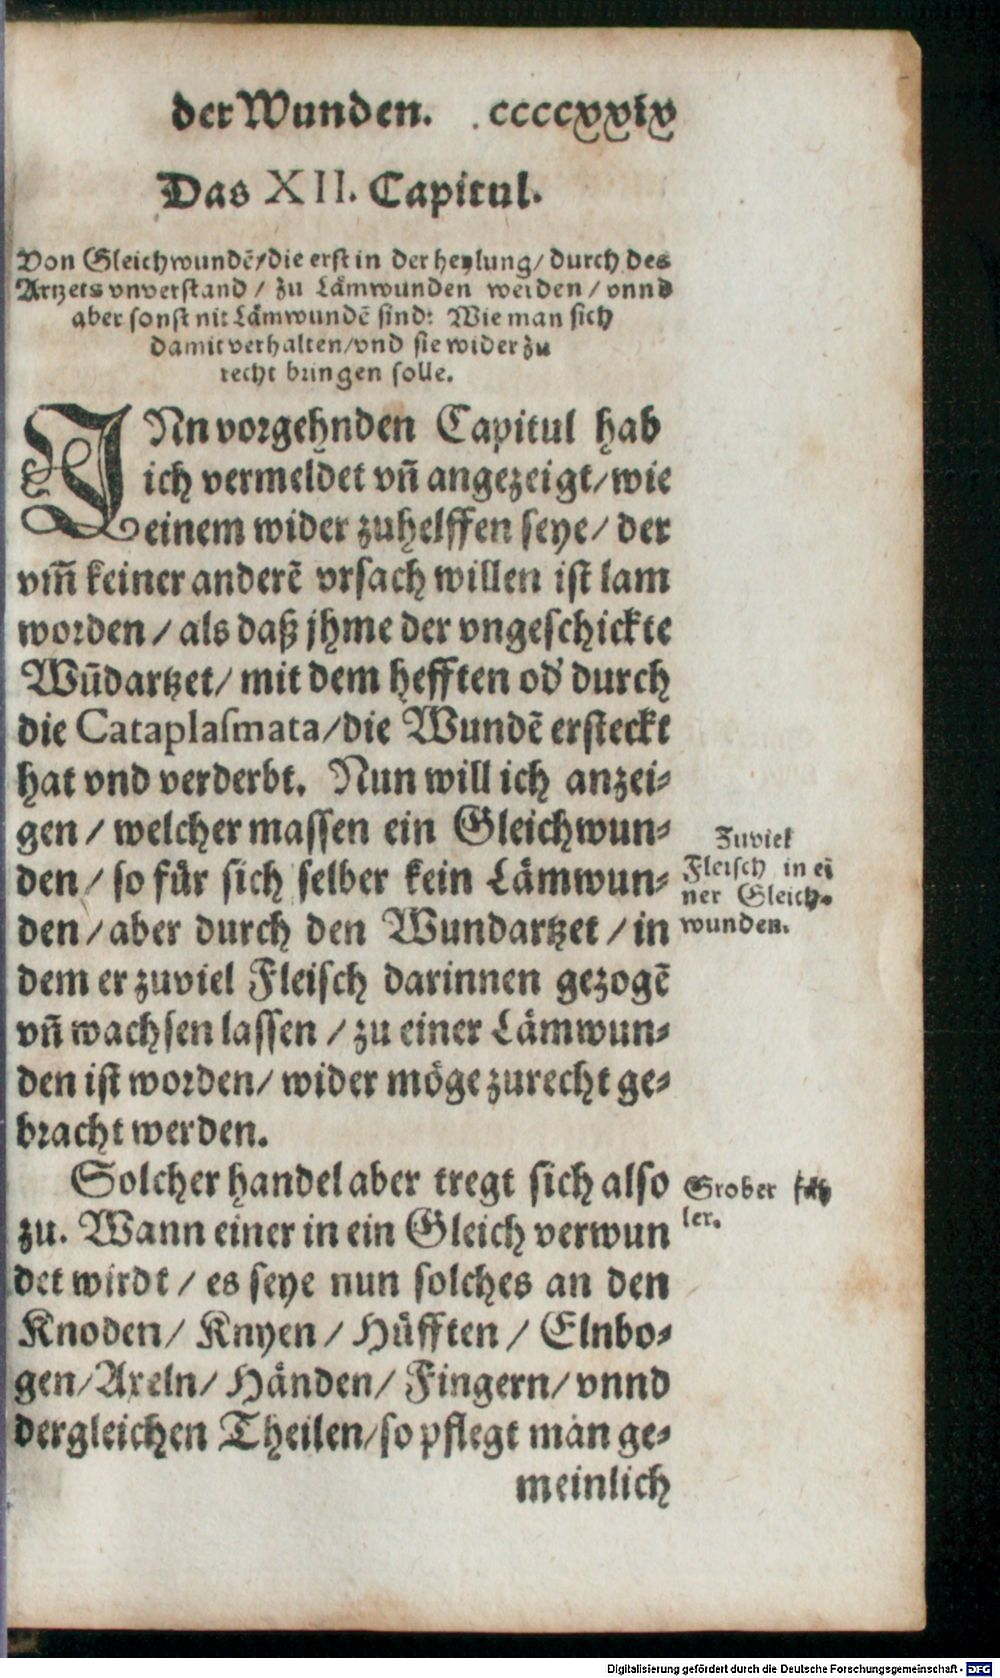 der Wunden. ccccxxix
Das XII. Capitul.
Von Gleichwundē/die erst in der heylung/ durch des
Artzets vnverstand / zu Lämwunden werden / vnnd
aber sonst nit Lämwundē sind: Wie man sich
damit verhalten/vnd sie wider zu
recht bringen solle.
INn vorgehnden Capitul hab
ich vermeldet vñ angezeigt/wie
einem wider zuhelffen seye/ der
vm̃ keiner anderē vrsach willen ist lam
worden / als daß jhme der vngeschickte
Wũdartzet/ mit dem hefften od' durch
die Cataplasmata/die Wundē ersteckt
hat vnd verderbt. Nun will ich anzei-
gen / welcher massen ein Gleichwun-
den / so für sich selber kein Lämwun-
den / aber durch den Wundartzet / in
dem er zuviel Fleisch darinnen gezogē
vñ wachsen lassen / zu einer Lämwun-
den ist worden/ wider möge zurecht ge-
bracht werden.
Zuviel
Fleisch in ei
ner Gleich-
wunden.
Solcher handel aber tregt sich also
zu. Wann einer in ein Gleich verwun
det wirdt / es seye nun solches an den
Knoden/ Knyen / Hüfften / Elnbo-
gen/Axeln/ Händen/ Fingern/ vnnd
dergleichen Theilen/so pflegt man ge-
meinlich
Grober feh
ler.
Digitalisierung gefördert durch die Deutsche Forschungsgemeinschaft - DFG